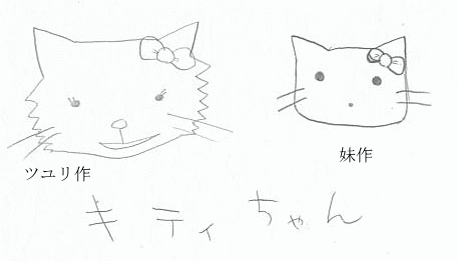 ツユリ作
妹作
キティちゃん